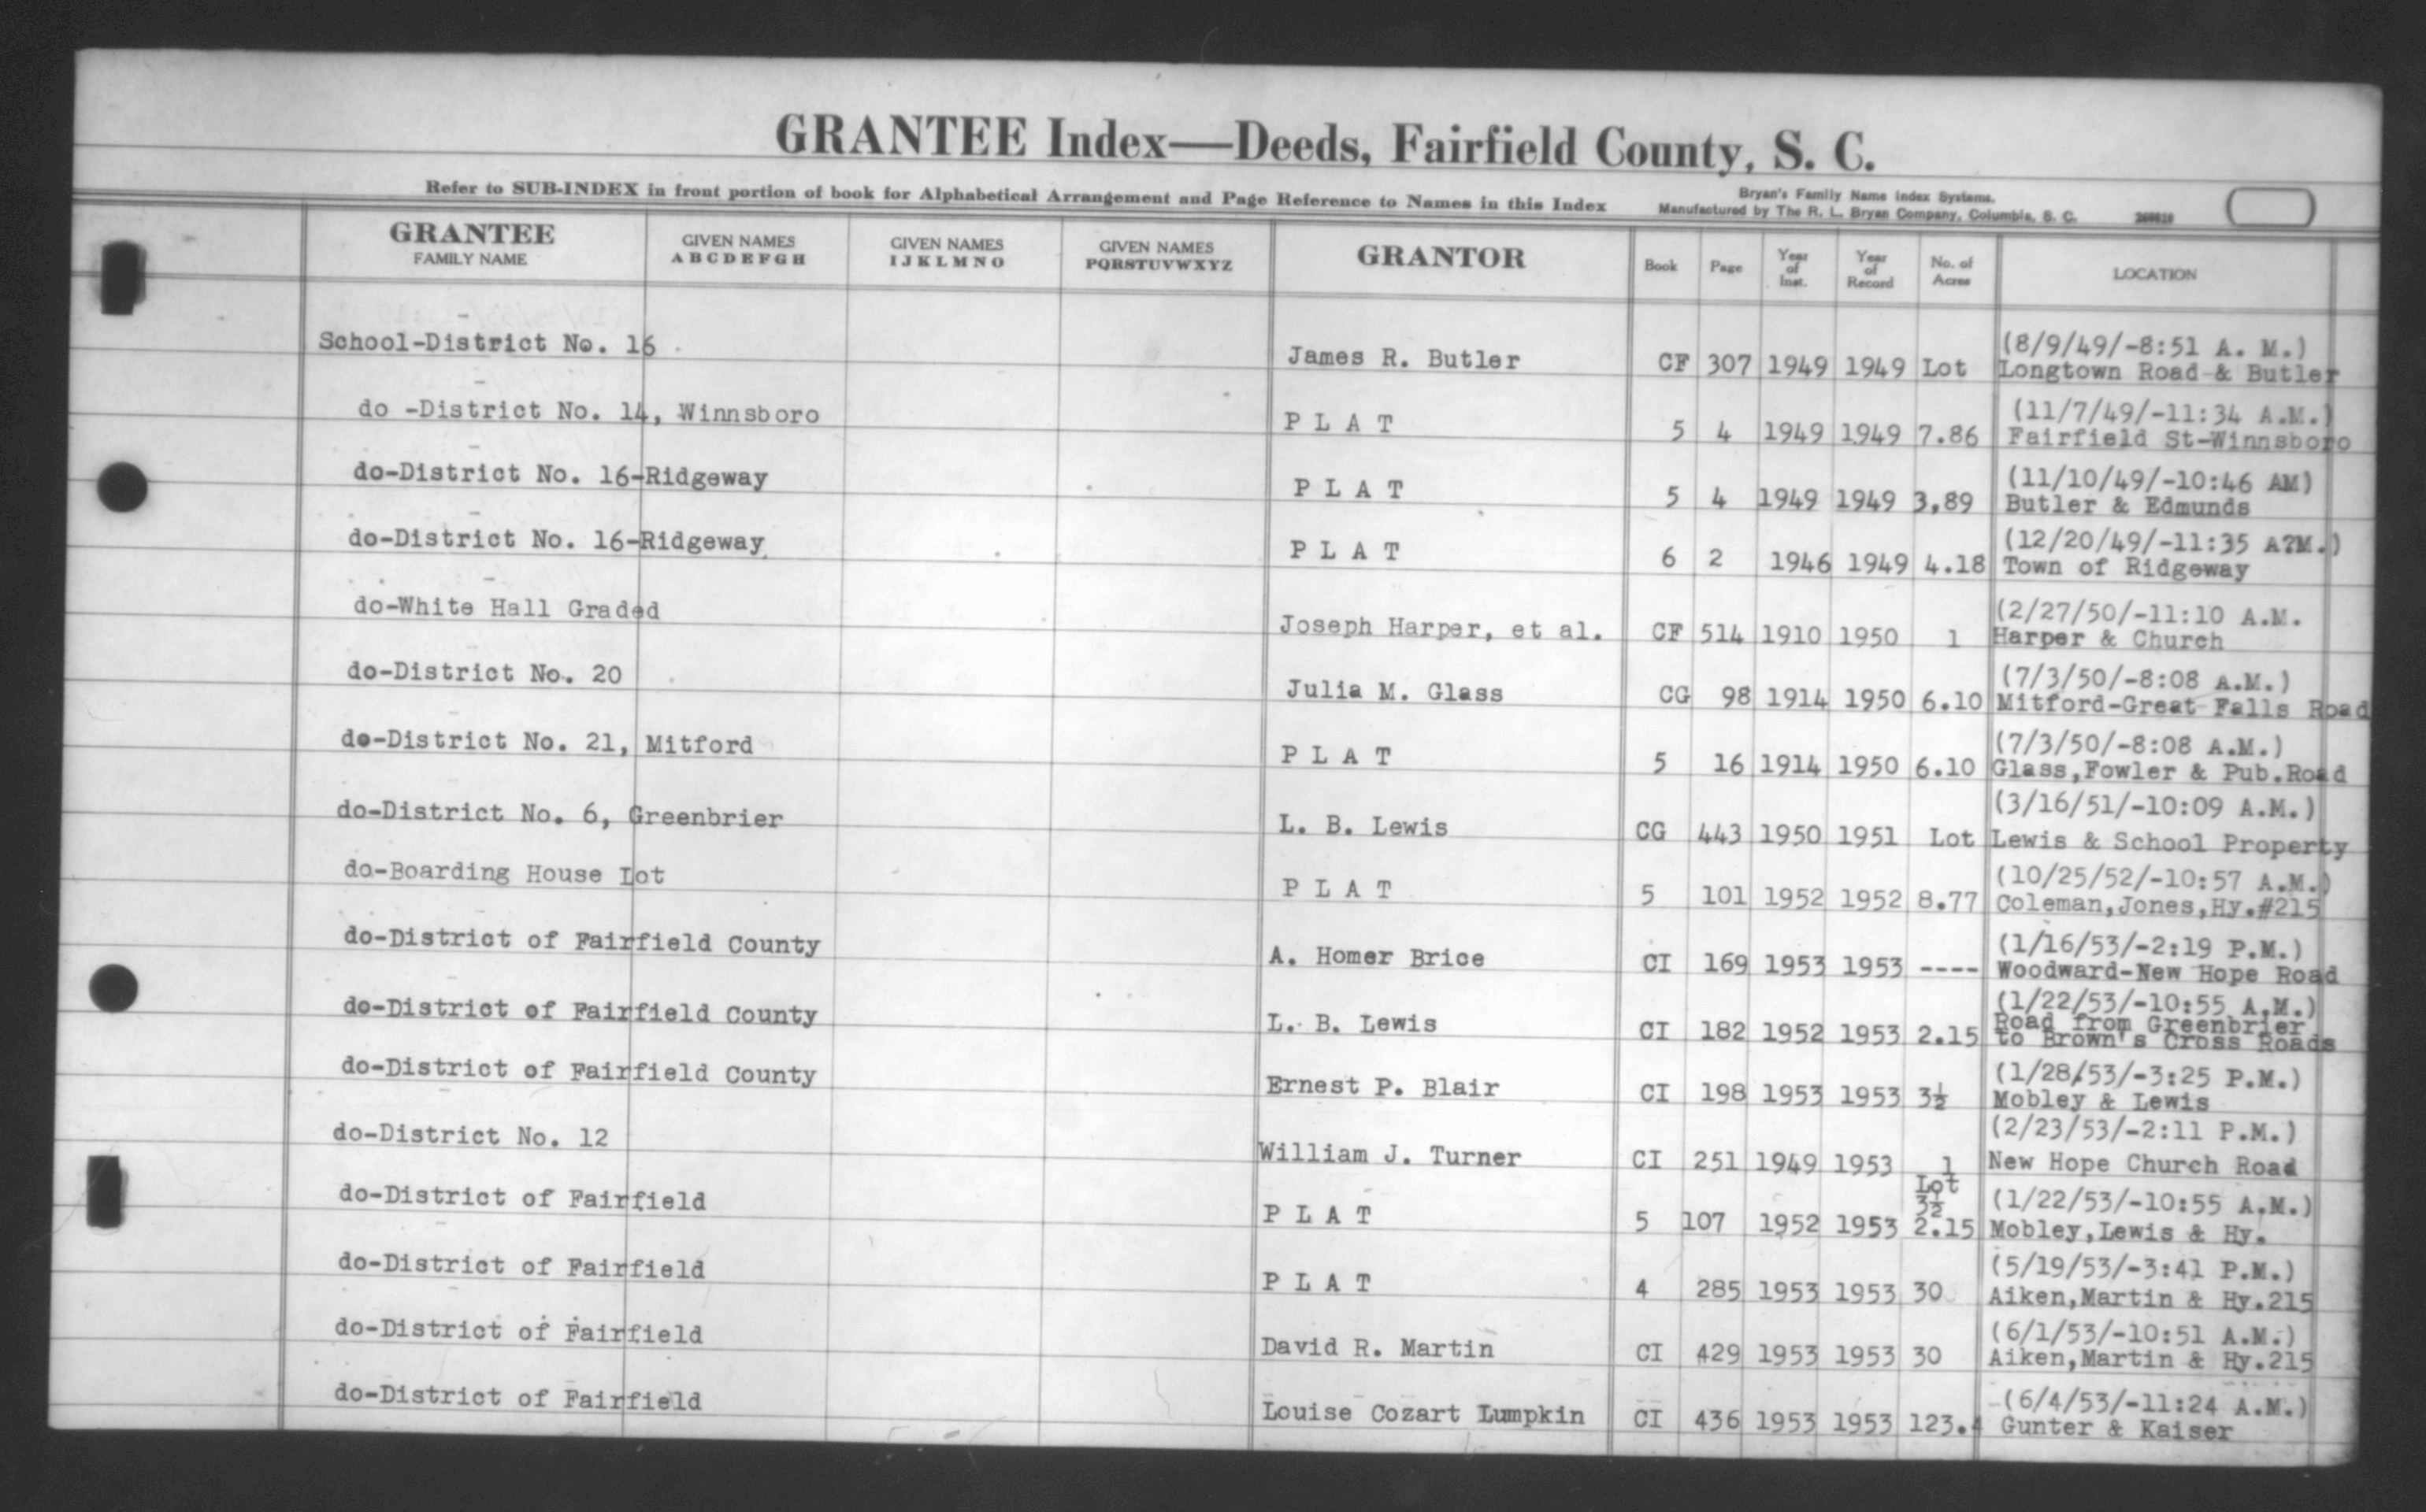 GRANTEE Index—Deeds, Fairfield County, S. C.
Refer to SUB-INDEX in front portion of book for Alphabetical Arrangement and Page Reference to Names in this Index
Bryan's Family Name Index Systems.
Manufactured by The R. L. Bryan Company, Columbia, S. C.
GRANTEE FAMILY NAME | GIVEN NAMES A B C D E F G H | GIVEN NAMES I J K L M N O | GIVEN NAMES PQRSTUVWXYZ | GRANTOR | Book | Page | Year of Inst. | Year of Record | No. of Acres | LOCATION
School-District No. 16 James R. Butler CF 307 1949 1949 Lot (8/9/49/-8:51 A. M.)
Longtown Road & Butler
do -District No. 14, Winnsboro P L A T 5 4 1949 1949 7.86 (11/7/49/-11:34 A.M.)
Fairfield St-Winnsboro
do-District No. 16-Ridgeway P L A T 5 4 1949 1949 3,89 (11/10/49/-10:46 AM)
Butler & Edmunds
do-District No. 16-Ridgeway P L A T 6 2 1946 1949 4.18 (12/20/49/-11:35 A?M.)
Town of Ridgeway
do-White Hall Graded Joseph Harper, et al. CF 514 1910 1950 1 (2/27/50/-11:10 A.M.
Harper & Church
do-District No. 20 Julia M. Glass CG 98 1914 1950 6.10 (7/3/50/-8:08 A.M.)
Mitford-Great Falls Road
do-District No. 21, Mitford P L A T 5 16 1914 1950 6.10 (7/3/50/-8:08 A.M.)
Glass,Fowler & Pub.Road
do-District No. 6, Greenbrier L. B. Lewis CG 443 1950 1951 Lot (3/16/51/-10:09 A.M.)
Lewis & School Property
do-Boarding House Lot P L A T 5 101 1952 1952 8.77 (10/25/52/-10:57 A.M.)
Coleman,Jones,Hy.#215
do-District of Fairfield County A. Homer Brice CI 169 1953 1953 ---- (1/16/53/-2:19 P.M.)
Woodward-New Hope Road
do-District of Fairfield County L. B. Lewis CI 182 1952 1953 2.15 (1/22/53/-10:55 A.M.)
Road from Greenbrier
to Brown's Cross Roads
do-District of Fairfield County Ernest P. Blair CI 198 1953 1953 3½ (1/28/53/-3:25 P.M.)
Mobley & Lewis
do-District No. 12 William J. Turner CI 251 1949 1953 1 (2/23/53/-2:11 P.M.)
Lot New Hope Church Road
do-District of Fairfield P L A T 5 107 1952 1953 3½ (1/22/53/-10:55 A.M.)
2.15 Mobley,Lewis & Hy.
do-District of Fairfield P L A T 4 285 1953 1953 30 (5/19/53/-3:41 P.M.)
Aiken,Martin & Hy.215
do-District of Fairfield David R. Martin CI 429 1953 1953 30 (6/1/53/-10:51 A.M.)
Aiken,Martin & Hy.215
do-District of Fairfield Louise Cozart Lumpkin CI 436 1953 1953 123.4 (6/4/53/-11:24 A.M.)
Gunter & Kaiser